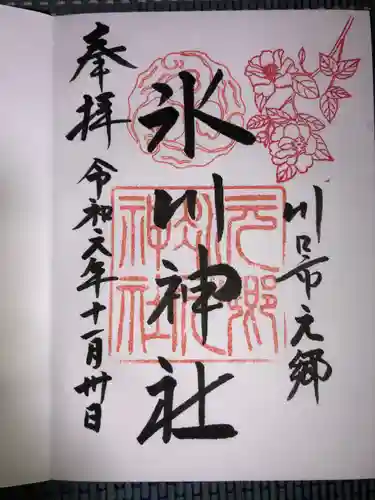 川口市元郷
氷川神社
奉拝
令和元年十一月卅日
元郷
氷川
神社